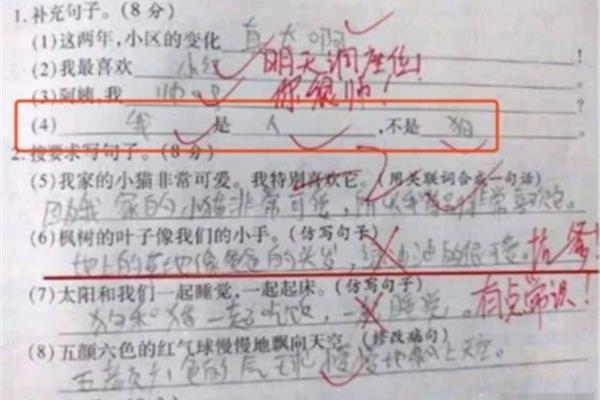 1.补充句子。(8分)
(1)这两年,小区的变化 真大啊 !
(2)我最喜欢 小红 明天调座位!
(3)阿姨,我 帅吗 ? 你很帅!
(4) 我 是 人 ,不是 狗
2.按要求写句子。(8分)
(5)我家的小猫非常可爱。我特别喜欢它。(用关联词合成一句话)
因为我家的小猫非常可爱,所以我非常喜欢它。
(6)枫树的叶子像我们的小手。(仿写句子)
地上的草地像爸爸的头发,绿油油的很 。
(7)太阳和我们一起睡觉,一起起床。(仿写句子)
狗和猫一起吃饭,一起睡觉。 有点常识!
(8)五颜六色的红气球慢慢地飘向天空。(修改病句)
五颜六色的气球慢慢地飘上天空。